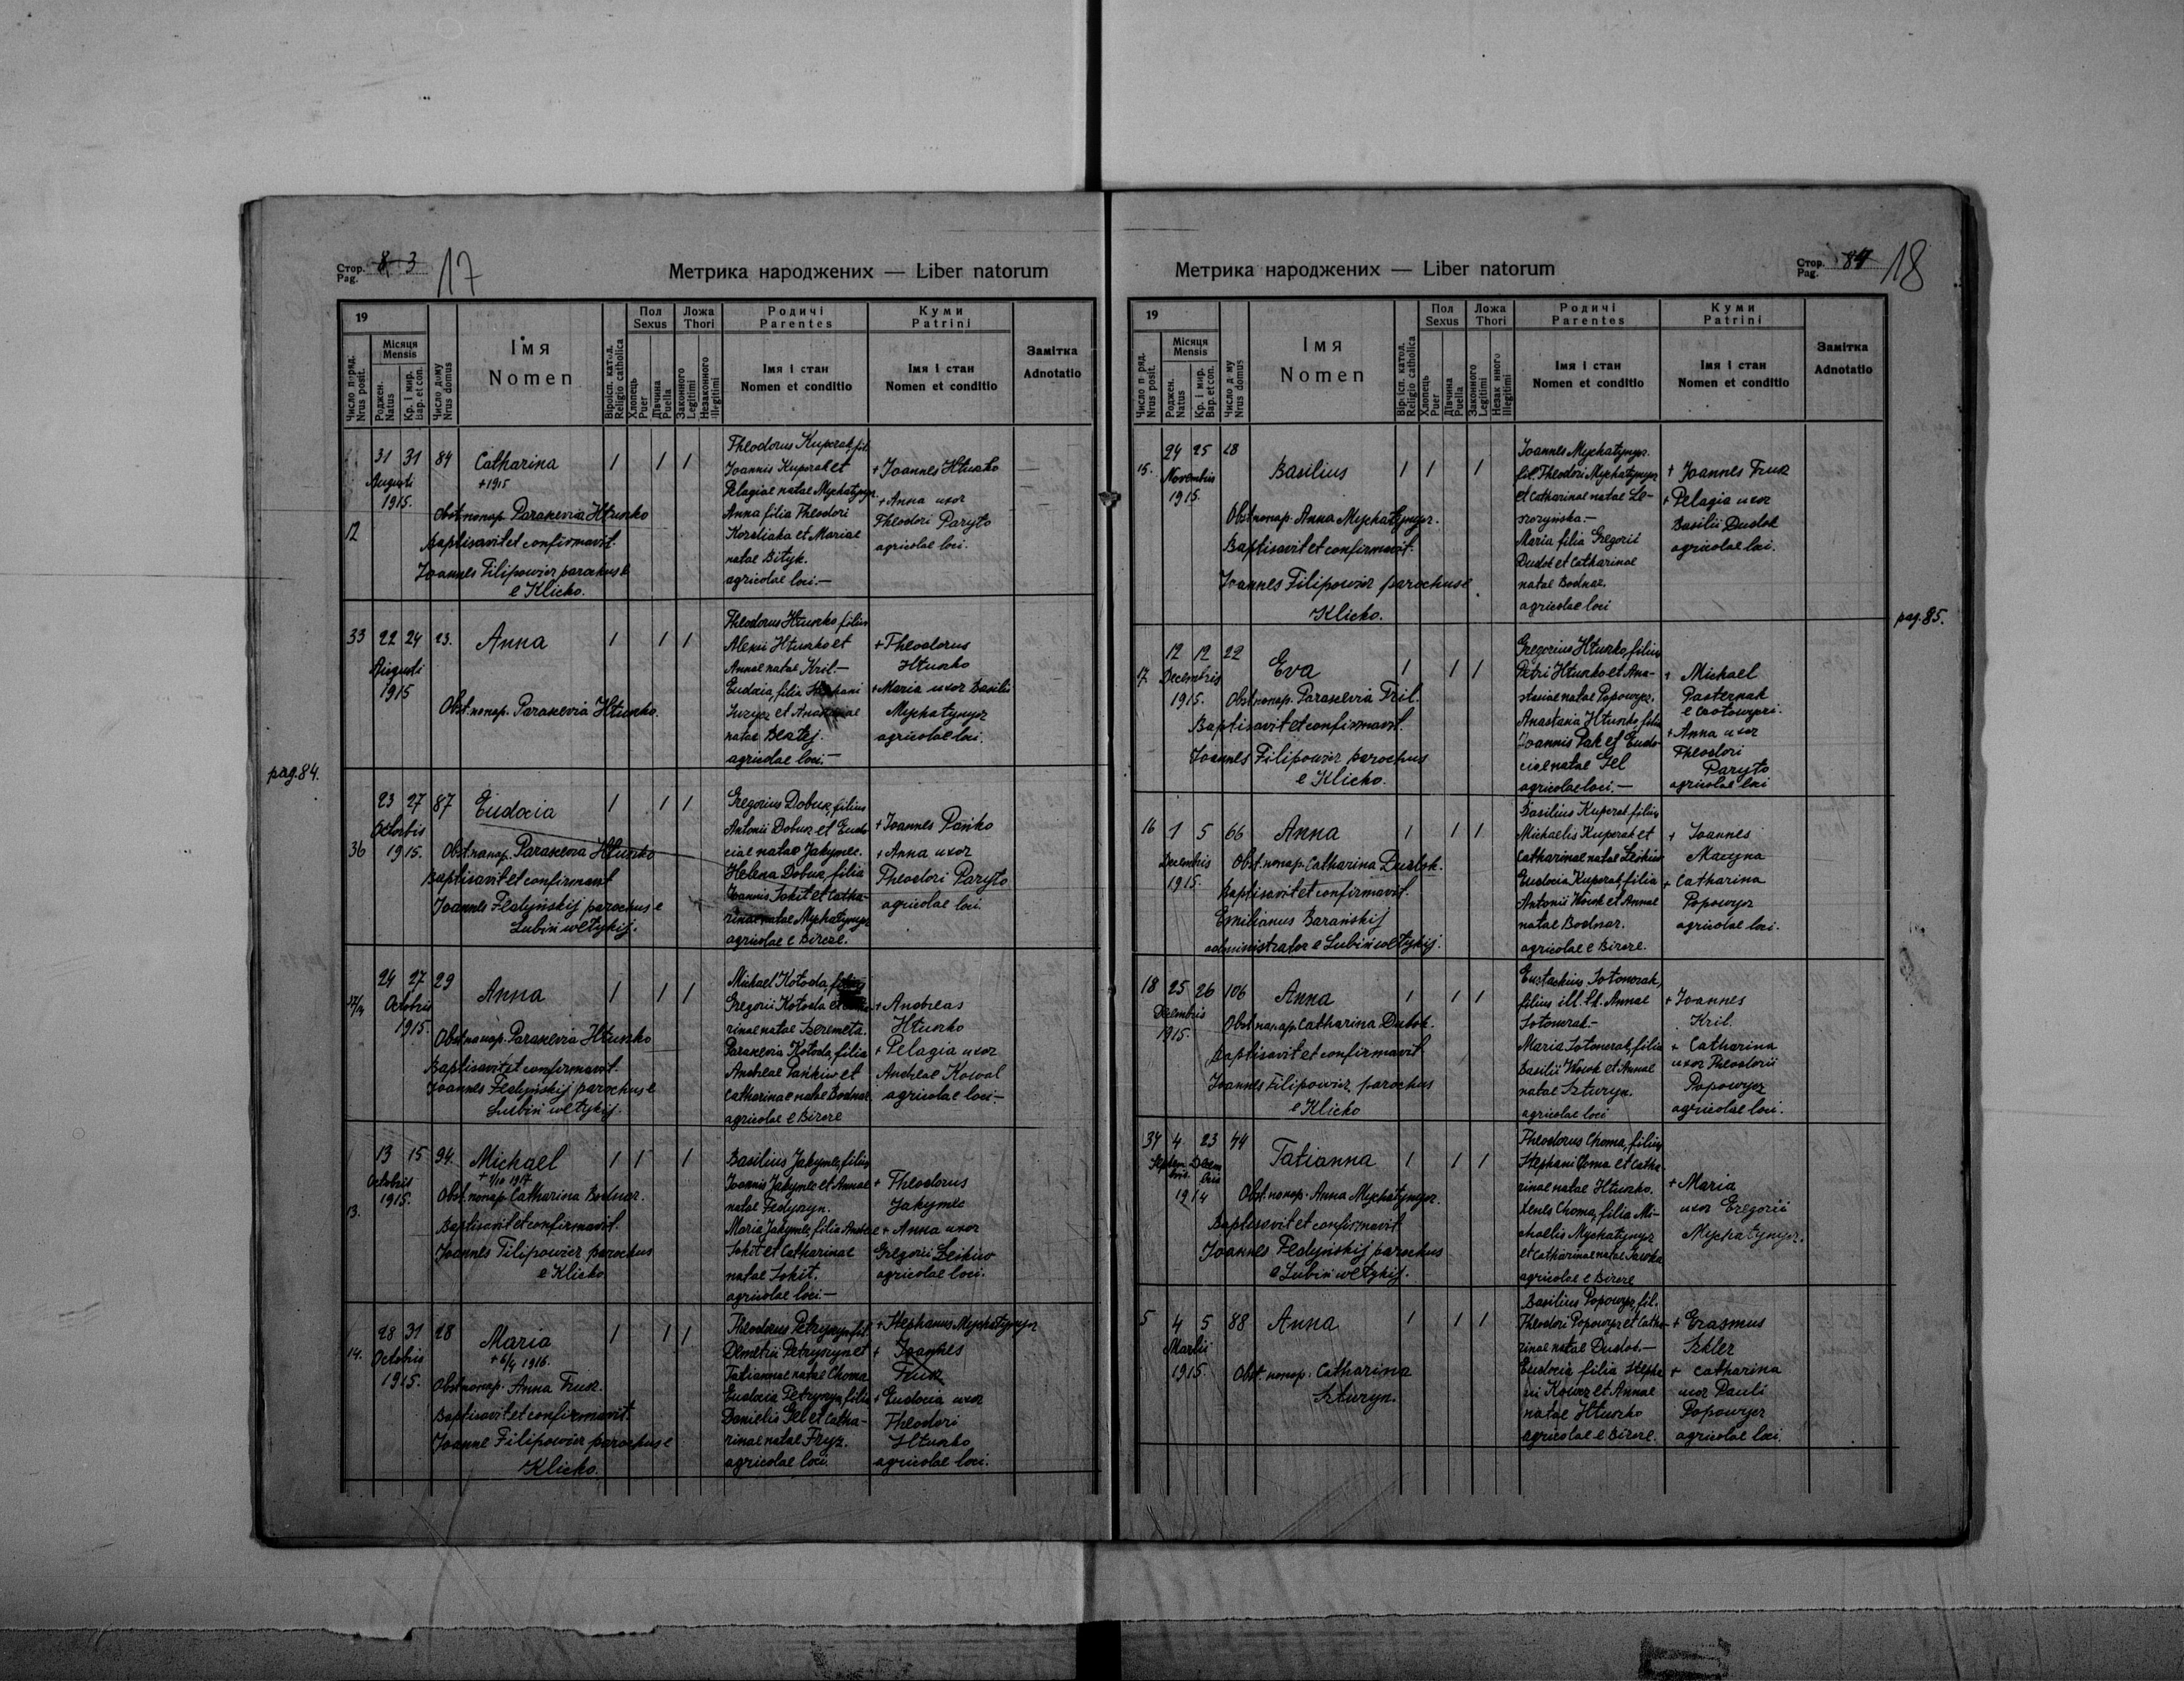 Стор. Pag. 8 3 17
Метрика народжених — Liber natorum
19
Число поряд. Nrus posit.
Місяця Mensis
Роджен. Natus
Кр. і мир. Bap. et con.
Число дому Nrus domus
Імя
Nomen
Віроісп. катол. Religio catholica
Пол Sexus
Хлопець Puer
Дівчина Puella
Ложа Thori
Законного Legitimi
Незаконного Illegitimi
Родичі Parentes
Імя і стан
Nomen et conditio
Куми Patrini
Імя і стан
Nomen et conditio
Замітка
Adnotatio
12
31 31 84 Catharina 1 1 1
+1915
Augusti
1915.
Obst. nonap. Paraxevia Hłuszko
Baptisavit et confirmavit.
Joannes Filipowicz parochus
e Klicko.
Theodorus Kuperak, fil.
Joannis Kuperak et
Pelagiae natae Mychatynycz
Anna filia Theodori
Koraliaka et Mariae
natae Bityk.
agricolae loci.—
+ Joannes Hłuszko
+ Anna uxor
Theodori Paryło
agricolae loci.
33 22 24 23. Anna 1 1 1
Augusti
1915
Obst. nonap. Paraxevia Hłuszko.
Theodorus Hłuszko filius
Alexii Hłuszko et
Annae natae Kril.—
Eudocia, filia
natae
agricolae loci.—
+ Theodorus
Hłuszko
+ Maria uxor Basilii
Mychatynycz
agricolae loci.
pag. 84.
36
23 27 87 Eudocia 1 1 1
Octobris
1915.
Obst. nonap. Paraxevia Hłuszko
Baptisavit et confirmavit
Joannes Fedyńskij parochus e
Lubiń wełykij.
Gregorius Dobusz, filius
Antonii Dobusz et Eudo-
ciae natae Jakymec.
Helena Dobusz, filia
Joannis Sokit et Catha-
rinae natae Mychatynycz
agricolae e Bircze.
+ Joannes Pańko
+ Anna uxor
Theodori Paryło
agricolae loci.
24 27 29 Anna 1 1 1
Octobris
1915.
Obst. nonap. Paraxevia Hłuszko
Baptisavit et confirmavit.
Joannes Fedyńskij parochus e
Lubiń wełykij.
Michael Kołoda, filius
Gregorii Kołoda et
rinae natae Szeremeta.
Paraxevia Kołoda, filia
Andreae Pańkiw et
Catharinae natae Bodnar
agricolae e Bircze
+ Andreas
Hłuszko
+ Pelagia uxor
Andreae Kowal
agricolae loci.—
13.
13 15 94. Michael 1 1 1
+ 1/10 1917
Octobris
1915.
Obst. nonap. Catharina Bodnar.
Baptisavit et confirmavit.
Joannes Filipowicz parochus
e Klicko
Basilius Jakymec, filius
Joannis Jakymec et Annae
natae Fedyszyn.
Maria Jakymec, filia Andreae
Sokit et Catharinae
natae Sokit.
agricolae loci.—
+ Theodorus
Jakymec
+ Anna uxor
Gregorii Leskiw
agricolae loci.
14.
28 31 28 Maria 1 1 1
+ 6/4 1916.
Octobris
1915.
Obst. nonap. Anna Frucz.
Baptisavit et confirmavit.
Joanne Filipowicz parochus e
Klicko.
Theodorus Petryszyn, fil.
Demetrii Petryszyn et
Tatiannae natae Choma
Eudocia Petryszyn, filia
Danielis Gel et Catha-
rinae natae Fryz.
agricolae loci.
+ Stephanus Mychatynycz
+ Joannes
Frucz
+ Eudocia uxor
Theodori
Hłuszko
agricolae loci.
Стор. Pag. 84 18
Метрика народжених — Liber natorum
19
Число поряд. Nrus posit.
Місяця Mensis
Роджен. Natus
Кр. і мир. Bap. et con.
Число дому Nrus domus
Імя
Nomen
Віроісп. катол. Religio catholica
Пол Sexus
Хлопець Puer
Дівчина Puella
Ложа Thori
Законного Legitimi
Незаконного Illegitimi
Родичі Parentes
Імя і стан
Nomen et conditio
Куми Patrini
Імя і стан
Nomen et conditio
Замітка
Adnotatio
15.
24 25 28 Basilius 1 1 1
Novembris
1915.
Obst. nonap. Anna Mychatynycz.
Baptisavit et confirmavit.
Joannes Filipowicz parochus e
Klicko.
Joannes Mychatynycz.
fil. Theodori Mychatynycz
et Catharinae natae Le-
szczyńska.—
Maria filia Gregorii
Dudok et Catharinae
natae Bodnar.
agricolae loci
+ Joannes Frucz
+ Pelagia uxor
Basilii Dudok
agricolae loci.
pag. 85.
17.
12 12 22 Eva 1 1 1
Decembris
1915.
Obst. nonap. Paraxevia Fril.
Baptisavit et confirmavit.
Joannes Filipowicz parochus
e Klicko.
Gregorius Hłuszko, filius
Petri Hłuszko et Ana-
stasiae natae Popowycz.
Anastasia Hłuszko, filia
Joannis Pak et Eudo-
ciae natae Gel
agricolae loci.—
+ Michael
Pasternak
+ Anna uxor
Theodori
Paryło
agricolae loci
16 1 5 66 Anna 1 1 1
Decembris
1915.
Obst. nonap. Catharina Dudok.
Baptisavit et confirmavit.
Emilianus Barańskij
administrator e Lubiń wełykij.
Basilius Kuperak, filius
Michaelis Kuperak et
Catharinae natae Leskiw
Eudocia Kuperak, filia
Antonii Wowk et Annae
natae Bodnar.
agricolae e Bircze.
+ Joannes
Macyna
+ Catharina
Popowycz
agricolae loci.
18 25 26 106 Anna 1 1 1
Decembris
1915.
Obst. nonap. Catharina Dudok.
Baptisavit et confirmavit
Joannes Filipowicz parochus
e Klicko
Eustachius Sołonczak,
filius ill. th. Annae
Sołonczak.—
Maria Sołonczak, filia
Basilii Wowk et Annae
natae Szturyn.
agricolae loci
+ Joannes
Kril.
+ Catharina
uxor Theodorii
Popowycz
agricolae loci.
34 4 23 44 Tatianna 1 1 1
Septembris Decembris
1914
Obst. nonap. Anna Mychatynycz.
Baptisavit et confirmavit
Joannes Fedyńskij parochus
e Lubiń wełykij.
Theodorus Choma, filius
Stephani Choma et Catha-
rinae natae Hłuszko.
Xenes Choma, filia Mi-
chaelis Mychatynycz
et Catharinae natae
agricolae e Bircze
+ Maria
uxor Gregorii
Mychatynycz.
5 4 5 88 Anna 1 1 1
Martii
1915.
Obst. nonap. Catharina
Szturyn.
Basilius Popowycz, fil.
Theodori Popowycz et Catha-
rinae natae Dudok.—
Eudocia filia Stepha-
ni Kowcz et Annae
natae Hłuszko
agricolae e Bircze.
+ Erasmus
Szkler
+ Catharina
uxor Pauli
Popowycz
agricolae loci.